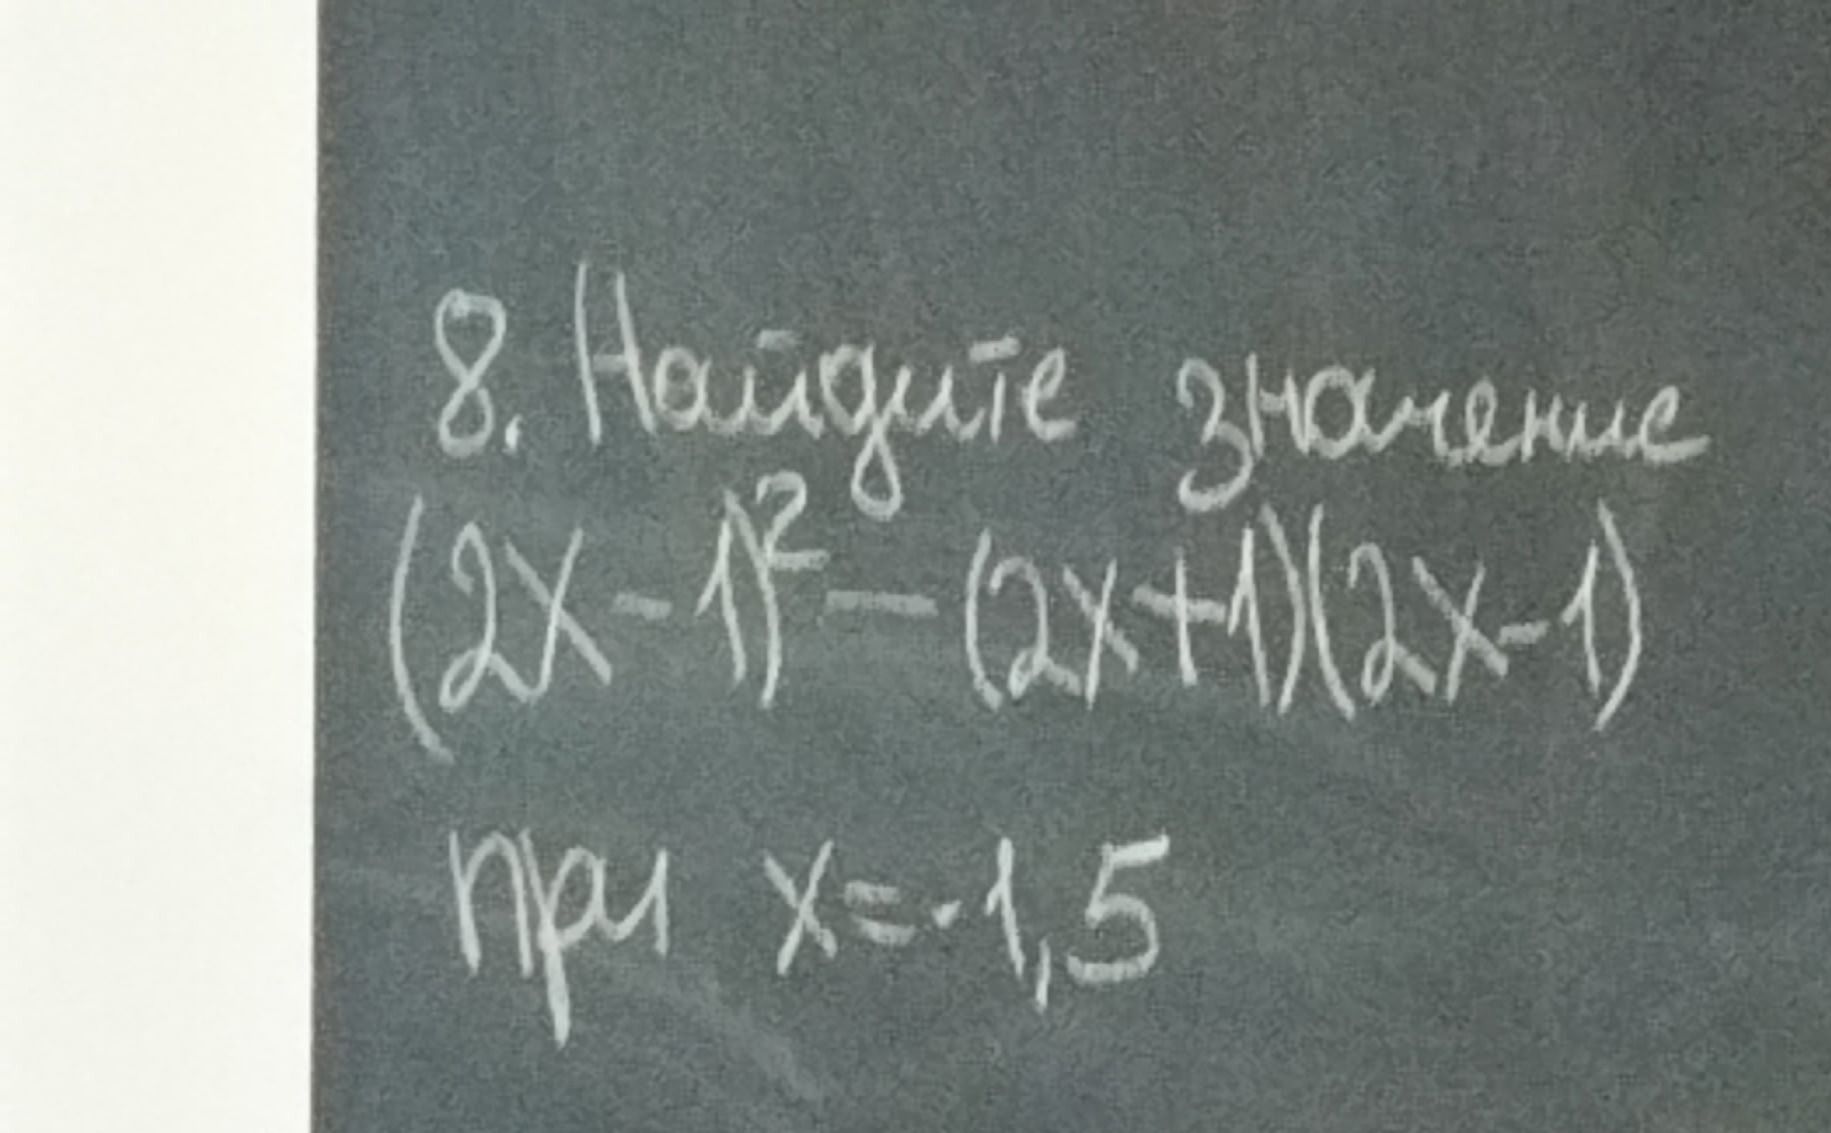 8. Найдите значение
(2x-1)² - (2x+1)(2x-1)
при x=-1,5